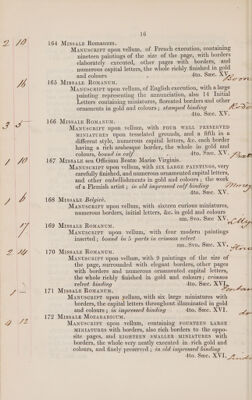 16
2 10 164 MISSALE ROMANUM.
MANUSCRIPT upon vellum, of French execution, containing
nineteen paintings of the size of the page, with borders
elaborately executed, other pages with borders, and
numerous capital letters, the whole richly finished in gold
and colours 4to. SÆC. XV.
16 165 MISSALE ROMANUM.
MANUSCRIPT upon vellum, of English execution, with a large
painting representing the annunciation, also 14 Initial
Letters containing miniatures, floreated borders and other
ornaments in gold and colours; stamped binding
4to. SÆC. XV.
3 5 166 MISSALE ROMANUM.
MANUSCRIPT upon vellum, with FOUR WELL PRESERVED
MINIATURES upon tesselated grounds, and a fifth in a
different style, numerous capital letters, &c. each border
bearing a rich arabesque border, the whole in gold and
colours, bound in calf 4to. SÆC. XV.
1 10 167 MISSALE seu Officium Beatæ Mariæ Virginis.
MANUSCRIPT upon vellum, with SIX LARGE PAINTINGS, very
carefully finished, and numerous ornamented capital letters,
and other embellishments in gold and colours; the work
of a Flemish artist; in old impressed calf binding
4to. SÆC. XV.
1 6 168 MISSALE Belgicè.
MANUSCRIPT upon vellum, with sixteen curious miniatures,
numerous borders, initial letters, &c. in gold and colours
SM. 8VO. SÆC. XV.
17 169 MISSALE ROMANUM.
MANUSCRIPT upon vellum, with four modern paintings
inserted; bound in 5 parts in crimson velvet
SM. 8VO. SÆC. XV.
170 MISSALE ROMANUM.
MANUSCRIPT upon vellum, with 9 paintings of the size of
the page, surrounded with elegant borders, other pages
with borders and numerous ornamented capital letters,
the whole richly finished in gold and colours; crimson
velvet binding 4to. SÆC. XV.
171 MISSALE ROMANUM.
MANUSCRIPT upon vellum, with six large miniatures with
borders, the capital letters throughout illuminated in gold
and colours; in impressed binding 4to. SÆC. XVI.
4 12 172 MISSALE MOZARABICUM.
MANUSCRIPT upon vellum, containing FOURTEEN LARGE
MINIATURES with borders, also rich borders to the opposite
pages, and EIGHTEEN SMALLER MINIATURES with
borders, the whole very neatly executed in rich gold and
colours, and finely preserved; in old impressed binding
4to. SÆC. XVI.